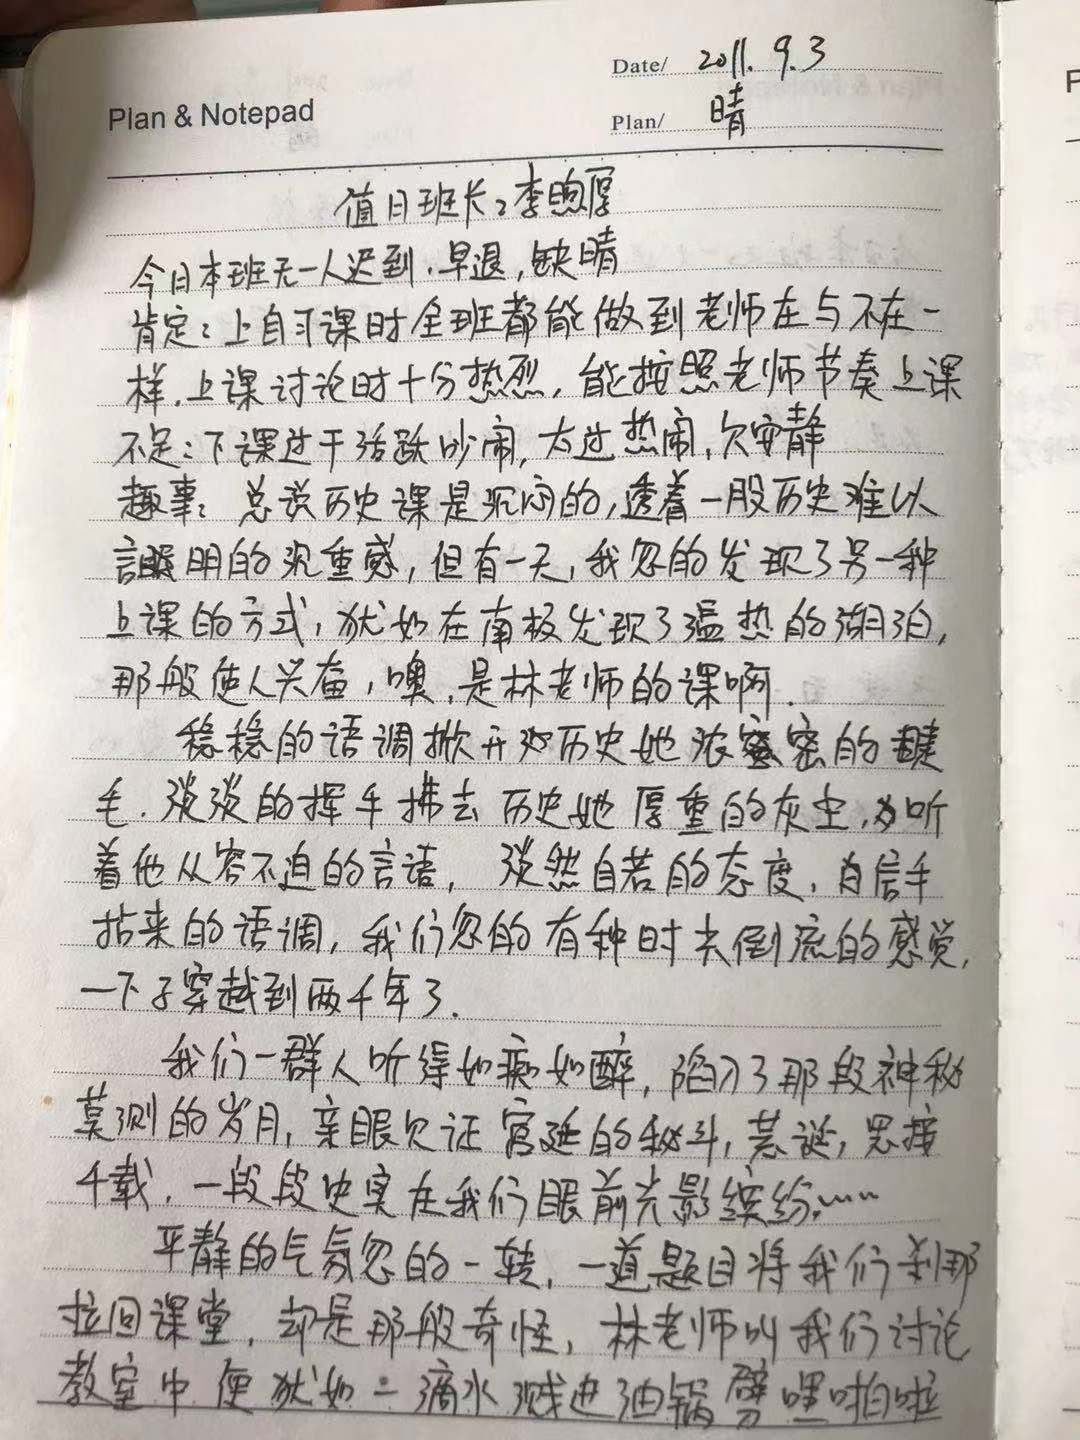 Date/ 2011. 9. 3
Plan & Notepad
Plan/ 晴
值日班长：李煦厚
今日本班无一人迟到，早退，缺晴
肯定：上自习课时全班都能做到老师在与不在一
样，上课讨论时十分热烈，能按照老师节奏上课
不足：下课过于活跃吵闹，太过热闹，欠安静
趣事：总说历史课是沉闷的，透着一股历史难以
言明的沉重感，但有一天，我忽的发现了另一种
上课的方式，犹如在南极发现了温热的湖泊，
那般使人兴奋，噢，是林老师的课啊．
稳稳的语调掀开历史她浓密的睫
毛．淡淡的挥手拂去历史她厚重的灰尘，听
着他从容不迫的言语，淡然自若的态度，信手
拈来的语调，我们忽的有种时光倒流的感觉，
一下子穿越到两千年了．
我们一群人听得如痴如醉，陷入了那段神秘
莫测的岁月，亲眼见证宫廷的秘斗，荒诞，思接
千载，一段段史实在我们眼前光影缤纷……
平静的气氛忽的一转，一道题目将我们刹那
拉回课堂，却是那般奇怪，林老师叫我们讨论
教室中便犹如一滴水溅进油锅劈嘿啪啦